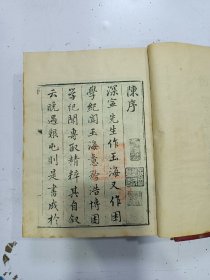 陳序
深寧先生作玉海又作困
學紀聞玉海意務浩博困
學紀聞專取精粹其自叙
云晚遇艱屯則是書成於